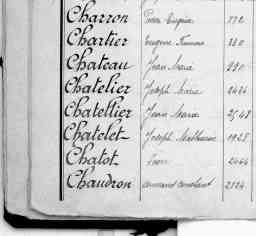 Charron Pierre 772
Chartier Eugene 220
Chateau Jean Marie 290
Chatelier Joseph Marie 2424
Chatellier Jean Marie 2548
Chatelet Joseph Mathurin 1928
Chatot 2444
Chaudron Armand Constant 2124